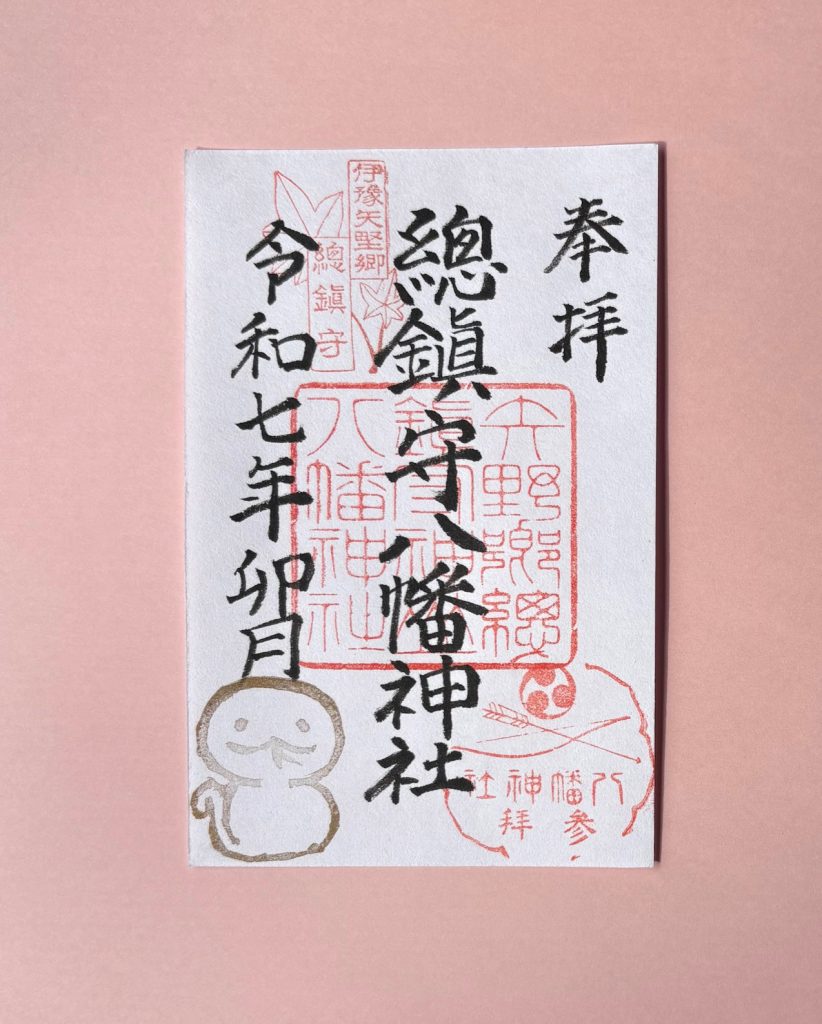 奉拝
總鎮守八幡神社
令和七年卯月
伊豫矢野郷
總鎮守
矢野郷總
鎮守神座
八幡神社
八幡神社
参拝